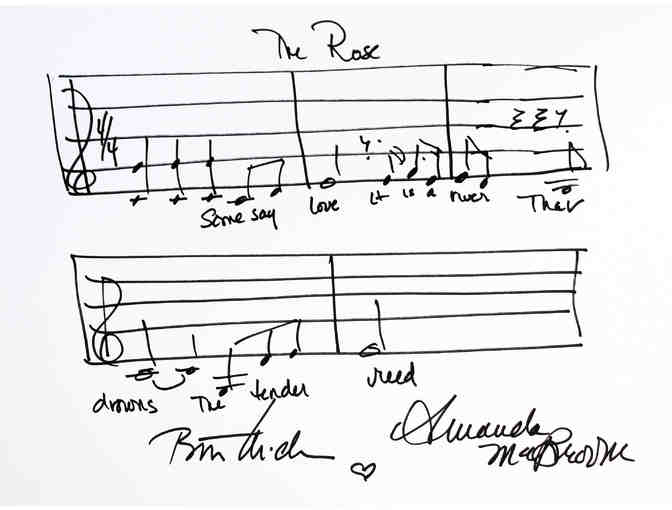 The Rose
4/4
Some say love it is a river That
drowns The tender reed
Amanda
McBroom